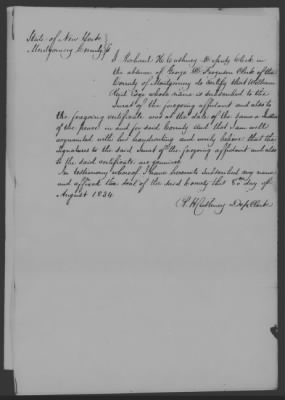 State of New York }
Montgomery County }
I Robert H. Cushney Deputy Clerk in
the absence of George D. Ferguson Clerk of the
County of Montgomery do certify that William
Reid Esqr whose name is subscribed to the
Jurat of the foregoing affidavit and also to
the foregoing certificate was at the date of the same a Justice
of the peace in and for said County and that I am well
acquainted with his handwriting and verily believe that the
signatures to the said Jurat of the foregoing affidavit and also
to the said certificate are genuine
In testimony whereof I have hereunto subscribed my name
and affixed the seal of the said County this 8th day of
August 1834
R H Cushney Dep Clerk